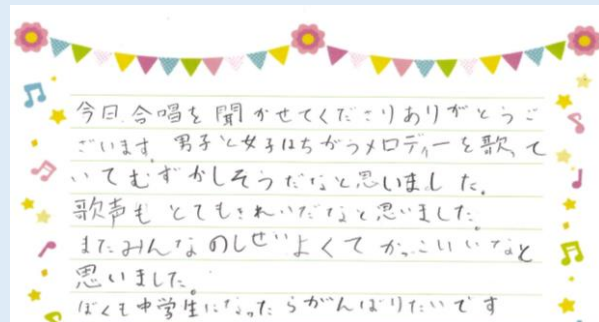 今日、合唱を聞かせてくださりありがとうご
ございます。男子と女子はちがうメロディーを歌って
いてむずかしそうだなと思いました。
歌声もとてもきれいだなと思いました。
またみんなのしせいよくてかっこいいなと
思いました。
ぼくも中学生になったらがんばりたいです